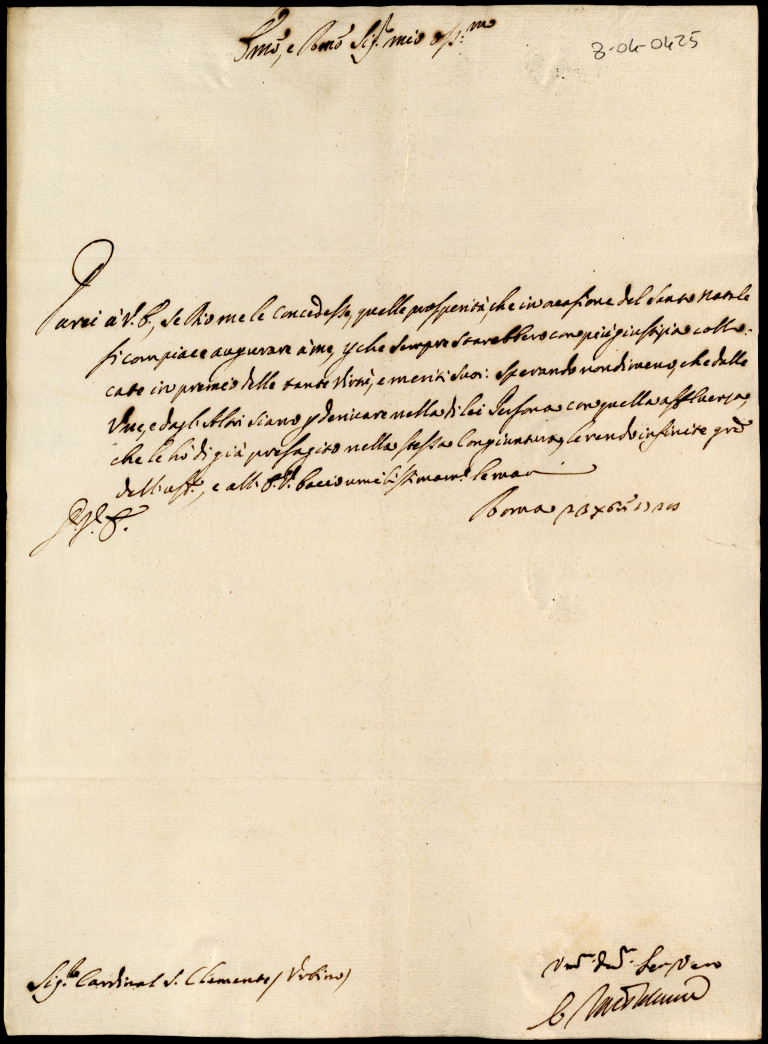 Em̃o, e Rm̃o Sig.r mio oss.mo
3-04-0425
Darei à V. E., se Dio me le concedesse, quelle prosperità, che in occasione del Santo Natale
si compiace augurare à me, che sempre starebbero con più giustizia collo:
cate in premio delle tante virtù, e meriti suoi: sperando nondimeno, che dalle
Une, e dagli Altri siano derivare nella di lei Persona con quella affluenza,
che le hò di già presagito nella stessa congiuntura, le rendo infinite grẽ
dell'uff.o, e all' E. V. bacio umilissimam.te le mani
Roma
Sig.r Cardinal S. Clemente / Urbino /
Ser Vero